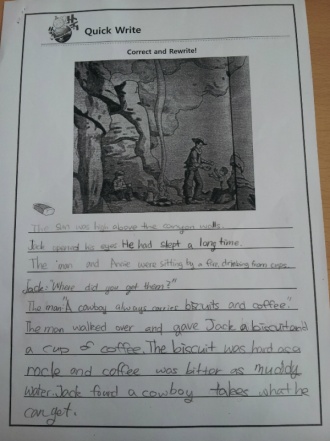 Quick Write
Correct and Rewrite!
The Sun was high above the canyon walls.
Jack opened his eyes He had slept a long time.
The man and Annie were sitting by a fire, drinking from cups.
Jack: "Where did you get them?"
The man "A cowboy always carries biscuits and coffee."
The man walked over and gave Jack a biscuit and
a cup of coffee. The biscuit was hard as a
rock and coffee was bitter as muddy
water. Jack found a cowboy takes what he
can get.